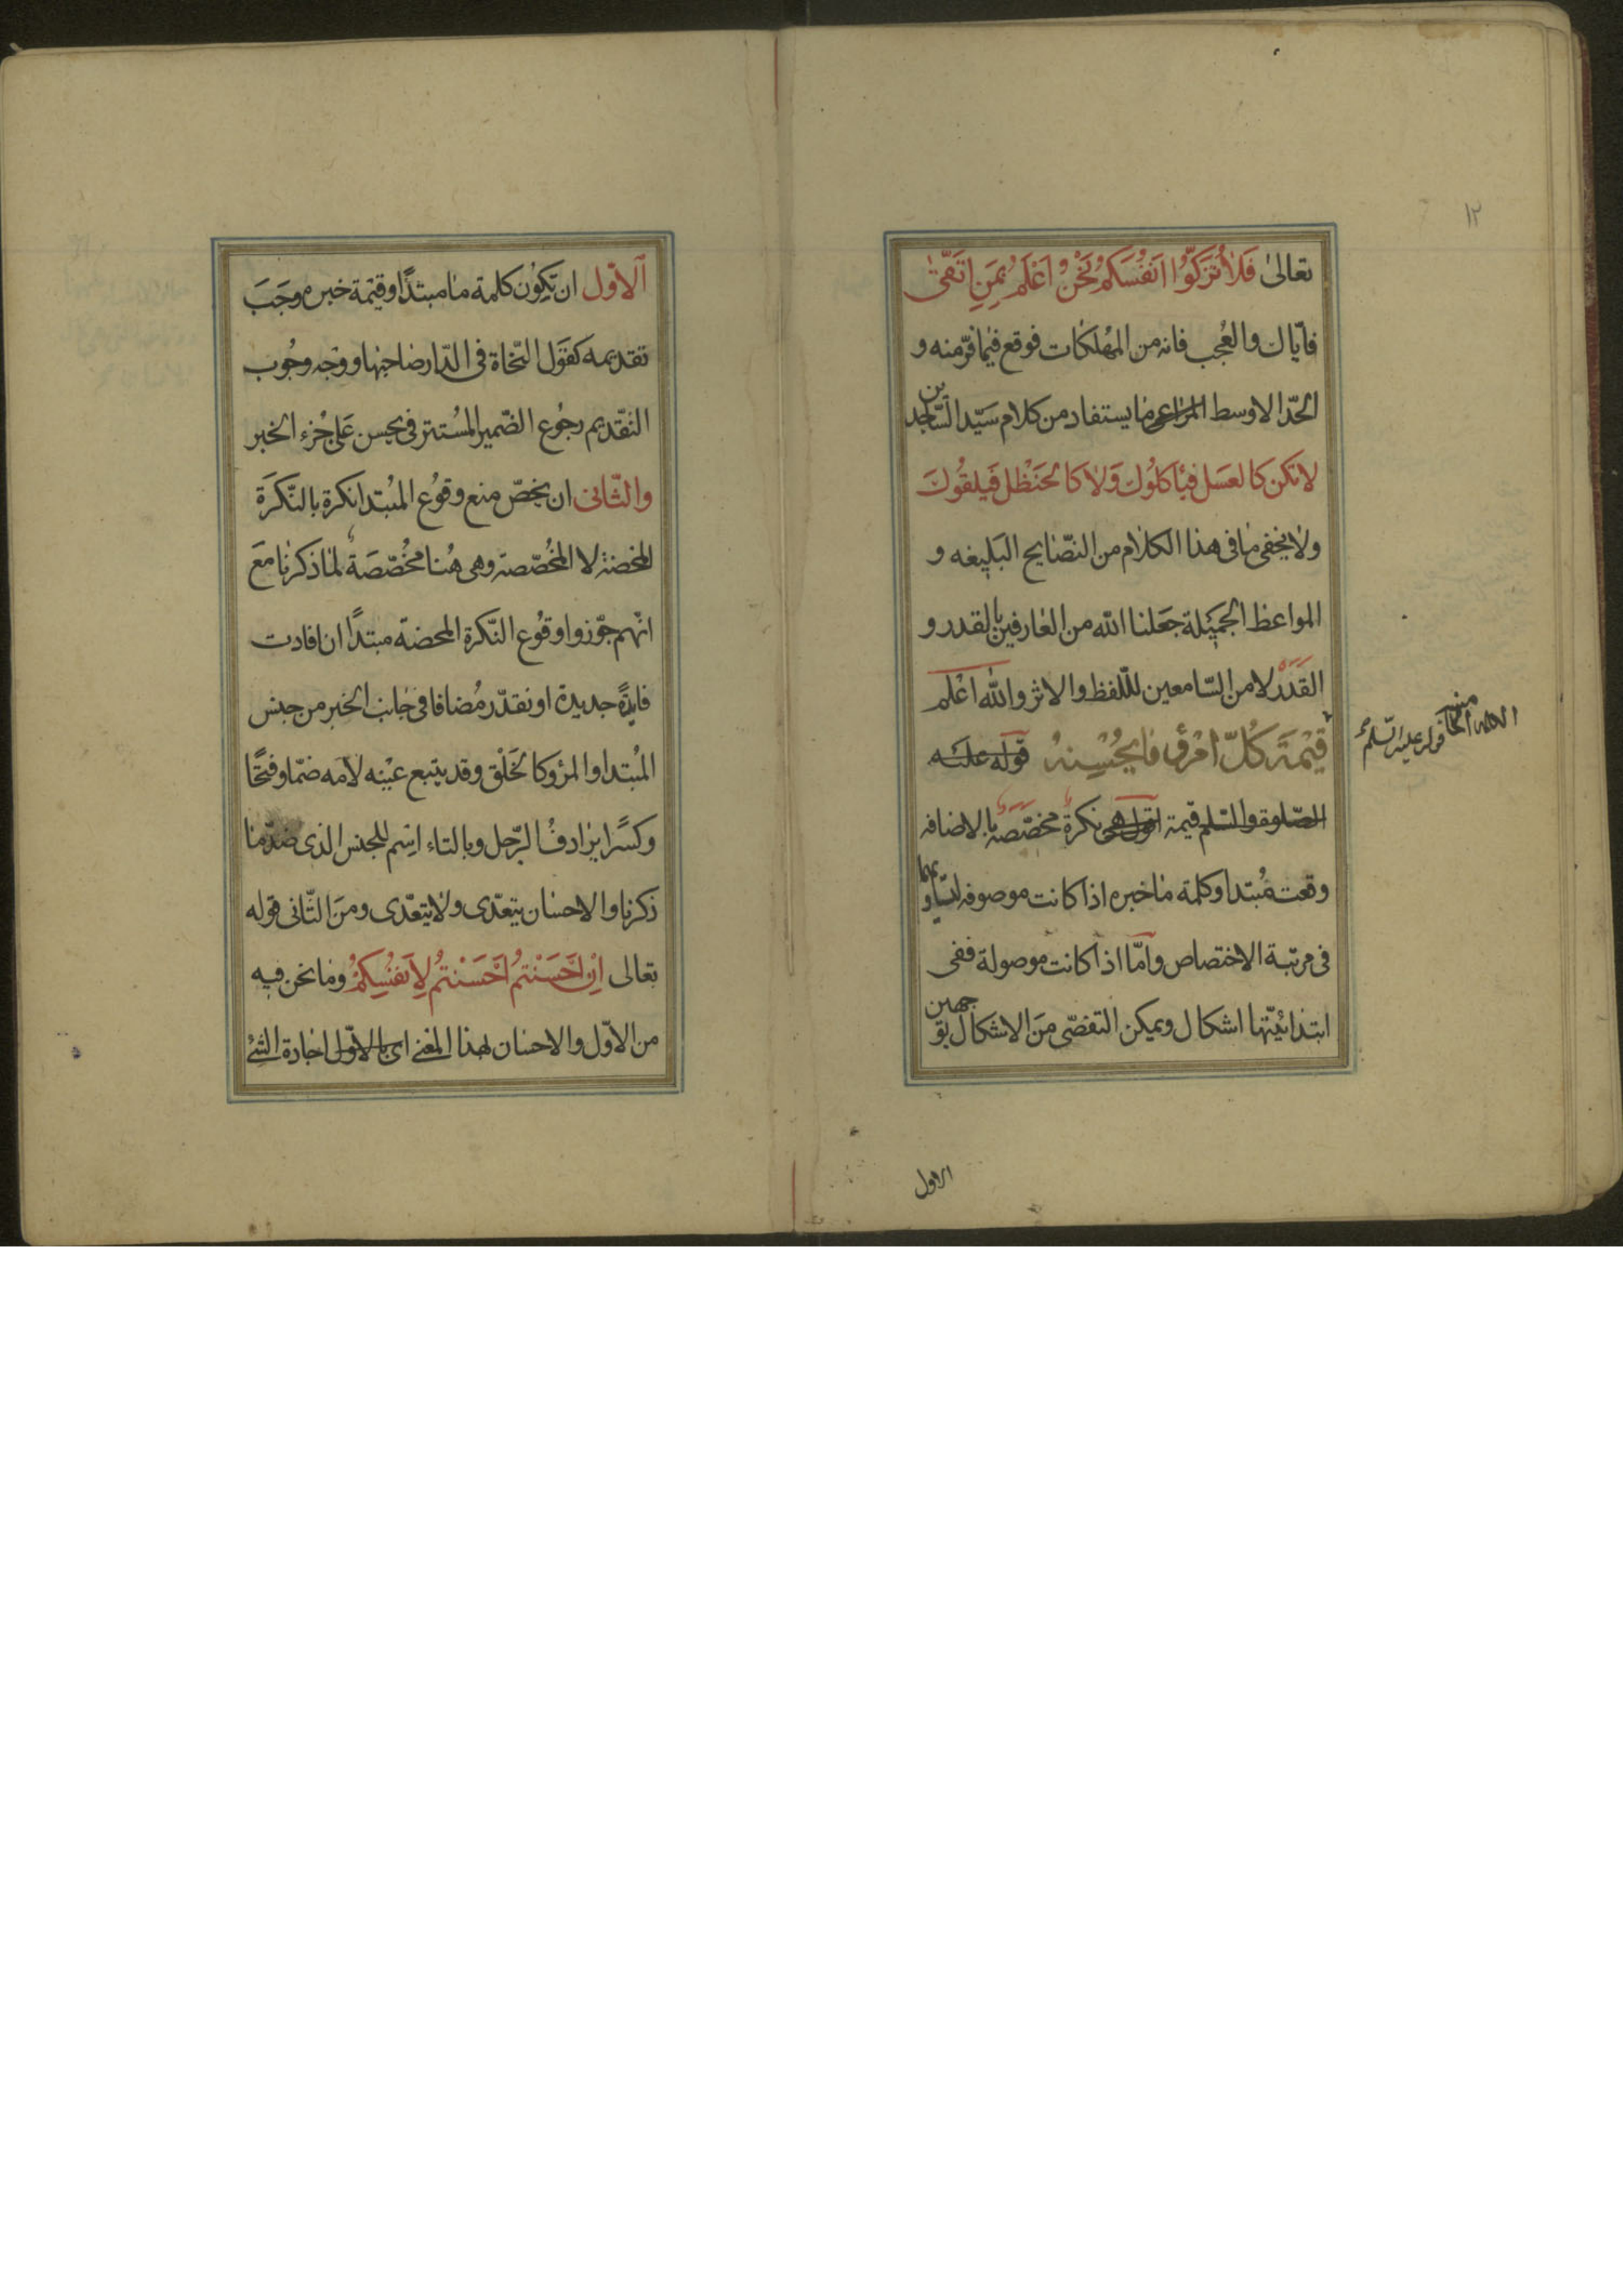 ١٢
تعالىٰ فَلاٰ تُزَكّوُا اَنفُسَكُم نَحْنُ اَعْلَمُ بِمَنِ اتَّقىٰ
فايّاك والعُجب فانه من المُهلكات فوقع فيما فرّ منه و
الحدّ الاوسط المراعى ما يستفاد من كلام سيّد السّاجدين
لا تكن كالعسل فيأكلوُك وَلاٰ كالحَنْظل فَيلقُوكَ
ولا يخفى ما فى هذا الكلام من النصّايح البَليغه و
المواعظ الجميَلة جَعَلنا الله من العٰارفين بالقدر و
القَدَر لا من السّامعين للّفظ والاثر والله اعْلم
قيْمَة كُلّ امْرئ مٰا يُحْسِنهُ قوله عليه
الصّلوة والسّلم قيمة اقول هى نكرة مخصّصه بالاضافه
وقعت مُبتدا وكلمة مٰا خبره اذا كانت موصوفه لتساويهما
فى مرتبة الاختصاص وامّا اذا كانت موصولة ففى
ابتدائيّتها اشكال ويمكن التفصّى مَن الاشكال بوجهين
قوله عليه السّلم
الاول
اَلاوّل ان تكوُن كلمة مٰا مبتدًا وقيْمة خبره وجَبَ
تقديمه كقوَل النّحاة فى الدّار صٰاحبهٰا ووجْه وجُوب
التقّديم رجُوع الضّمير المُستتر فى يحسن عَلى جُزء الخبر
والثّانى ان يخصّ منع وقوُع المُبتدا نكرة بالنّكرَة
المحضة لا المخُصّصة وهى هُنا مخُصّصَة لمٰا ذكرنٰا مَعَ
انّهم جوّزوا وقوُع النّكرة المحضة مبتدًا ان افادت
فايدًة جديدة او نقدّر مُضافا فى جٰانب الخبر من جنس
المُبتدا والمرؤ كالخَلْق وقد يتبع عيْنه لامه ضمّا وفتحًا
وكسًرا يرٰادفُ الرّجل وبالتاء اسْم للجنس الذى ضدّ مٰا
ذكرنا والاحسٰان يتعدّى ولا يتعدّى ومنَ الثّانى قوله
تعالى اِنْ اَحْسَنْتمُ اَحْسَنْتمُ لِاَنفُسِكُمْ ومٰا نحن فيه
من الاوّل والاحسٰان لهذا المعنى اى بالاوّل اجٰادة الشئ